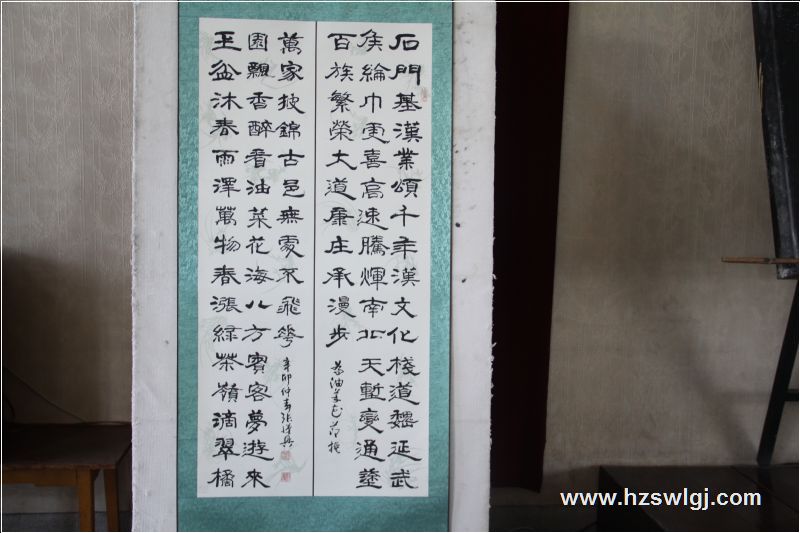 石門基漢業頌千年漢文化棧道魏延武
侯綸巾更喜高速騰輝南北天塹變通塗
百族繁榮大道康庄承漫步
玉盆沐春雨澤萬物春漲綠茶嶺滴翠橘
園飄香醉看油菜花海八方賓客夢遊來
萬家披錦古邑無處不飛花
辛卯仲春張
www.hzswlgj.com